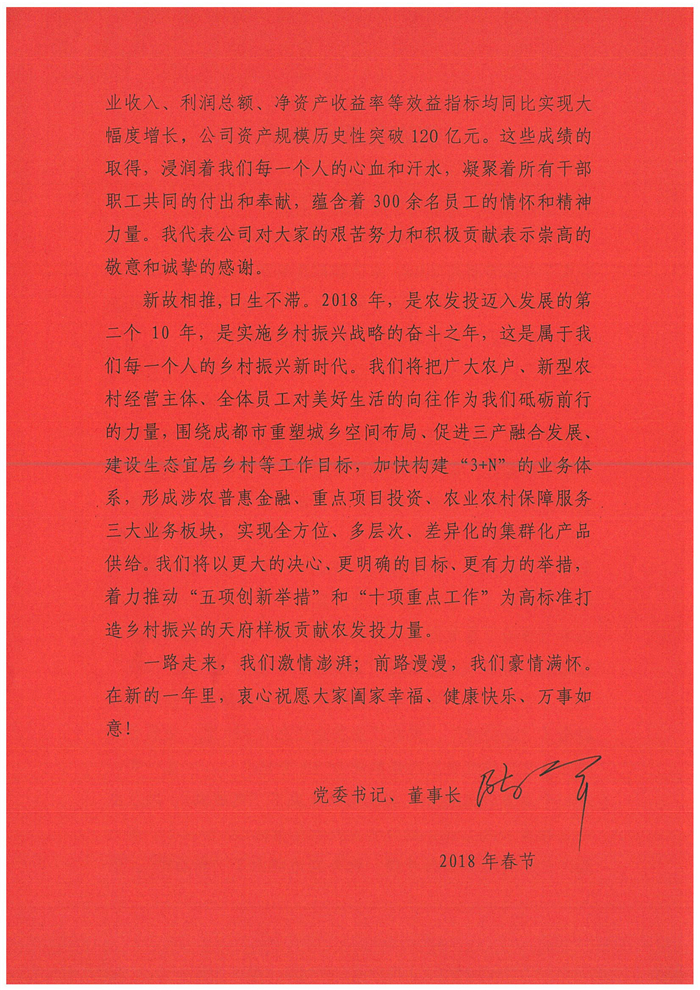 业收入、利润总额、净资产收益率等效益指标均同比实现大
幅度增长，公司资产规模历史性突破 120 亿元。这些成绩的
取得，浸润着我们每一个人的心血和汗水，凝聚着所有干部
职工共同的付出和奉献，蕴含着 300 余名员工的情怀和精神
力量。我代表公司对大家的艰苦努力和积极贡献表示崇高的
敬意和诚挚的感谢。
新故相推,日生不滞。2018 年，是农发投迈入发展的第
二个 10 年，是实施乡村振兴战略的奋斗之年，这是属于我
们每一个人的乡村振兴新时代。我们将把广大农户、新型农
村经营主体、全体员工对美好生活的向往作为我们砥砺前行
的力量，围绕成都市重塑城乡空间布局、促进三产融合发展、
建设生态宜居乡村等工作目标，加快构建“3+N”的业务体
系，形成涉农普惠金融、重点项目投资、农业农村保障服务
三大业务板块，实现全方位、多层次、差异化的集群化产品
供给。我们将以更大的决心、更明确的目标、更有力的举措，
着力推动“五项创新举措”和“十项重点工作”为高标准打
造乡村振兴的天府样板贡献农发投力量。
一路走来，我们激情澎湃；前路漫漫，我们豪情满怀。
在新的一年里，衷心祝愿大家阖家幸福、健康快乐、万事如
意！
党委书记、董事长
2018 年春节